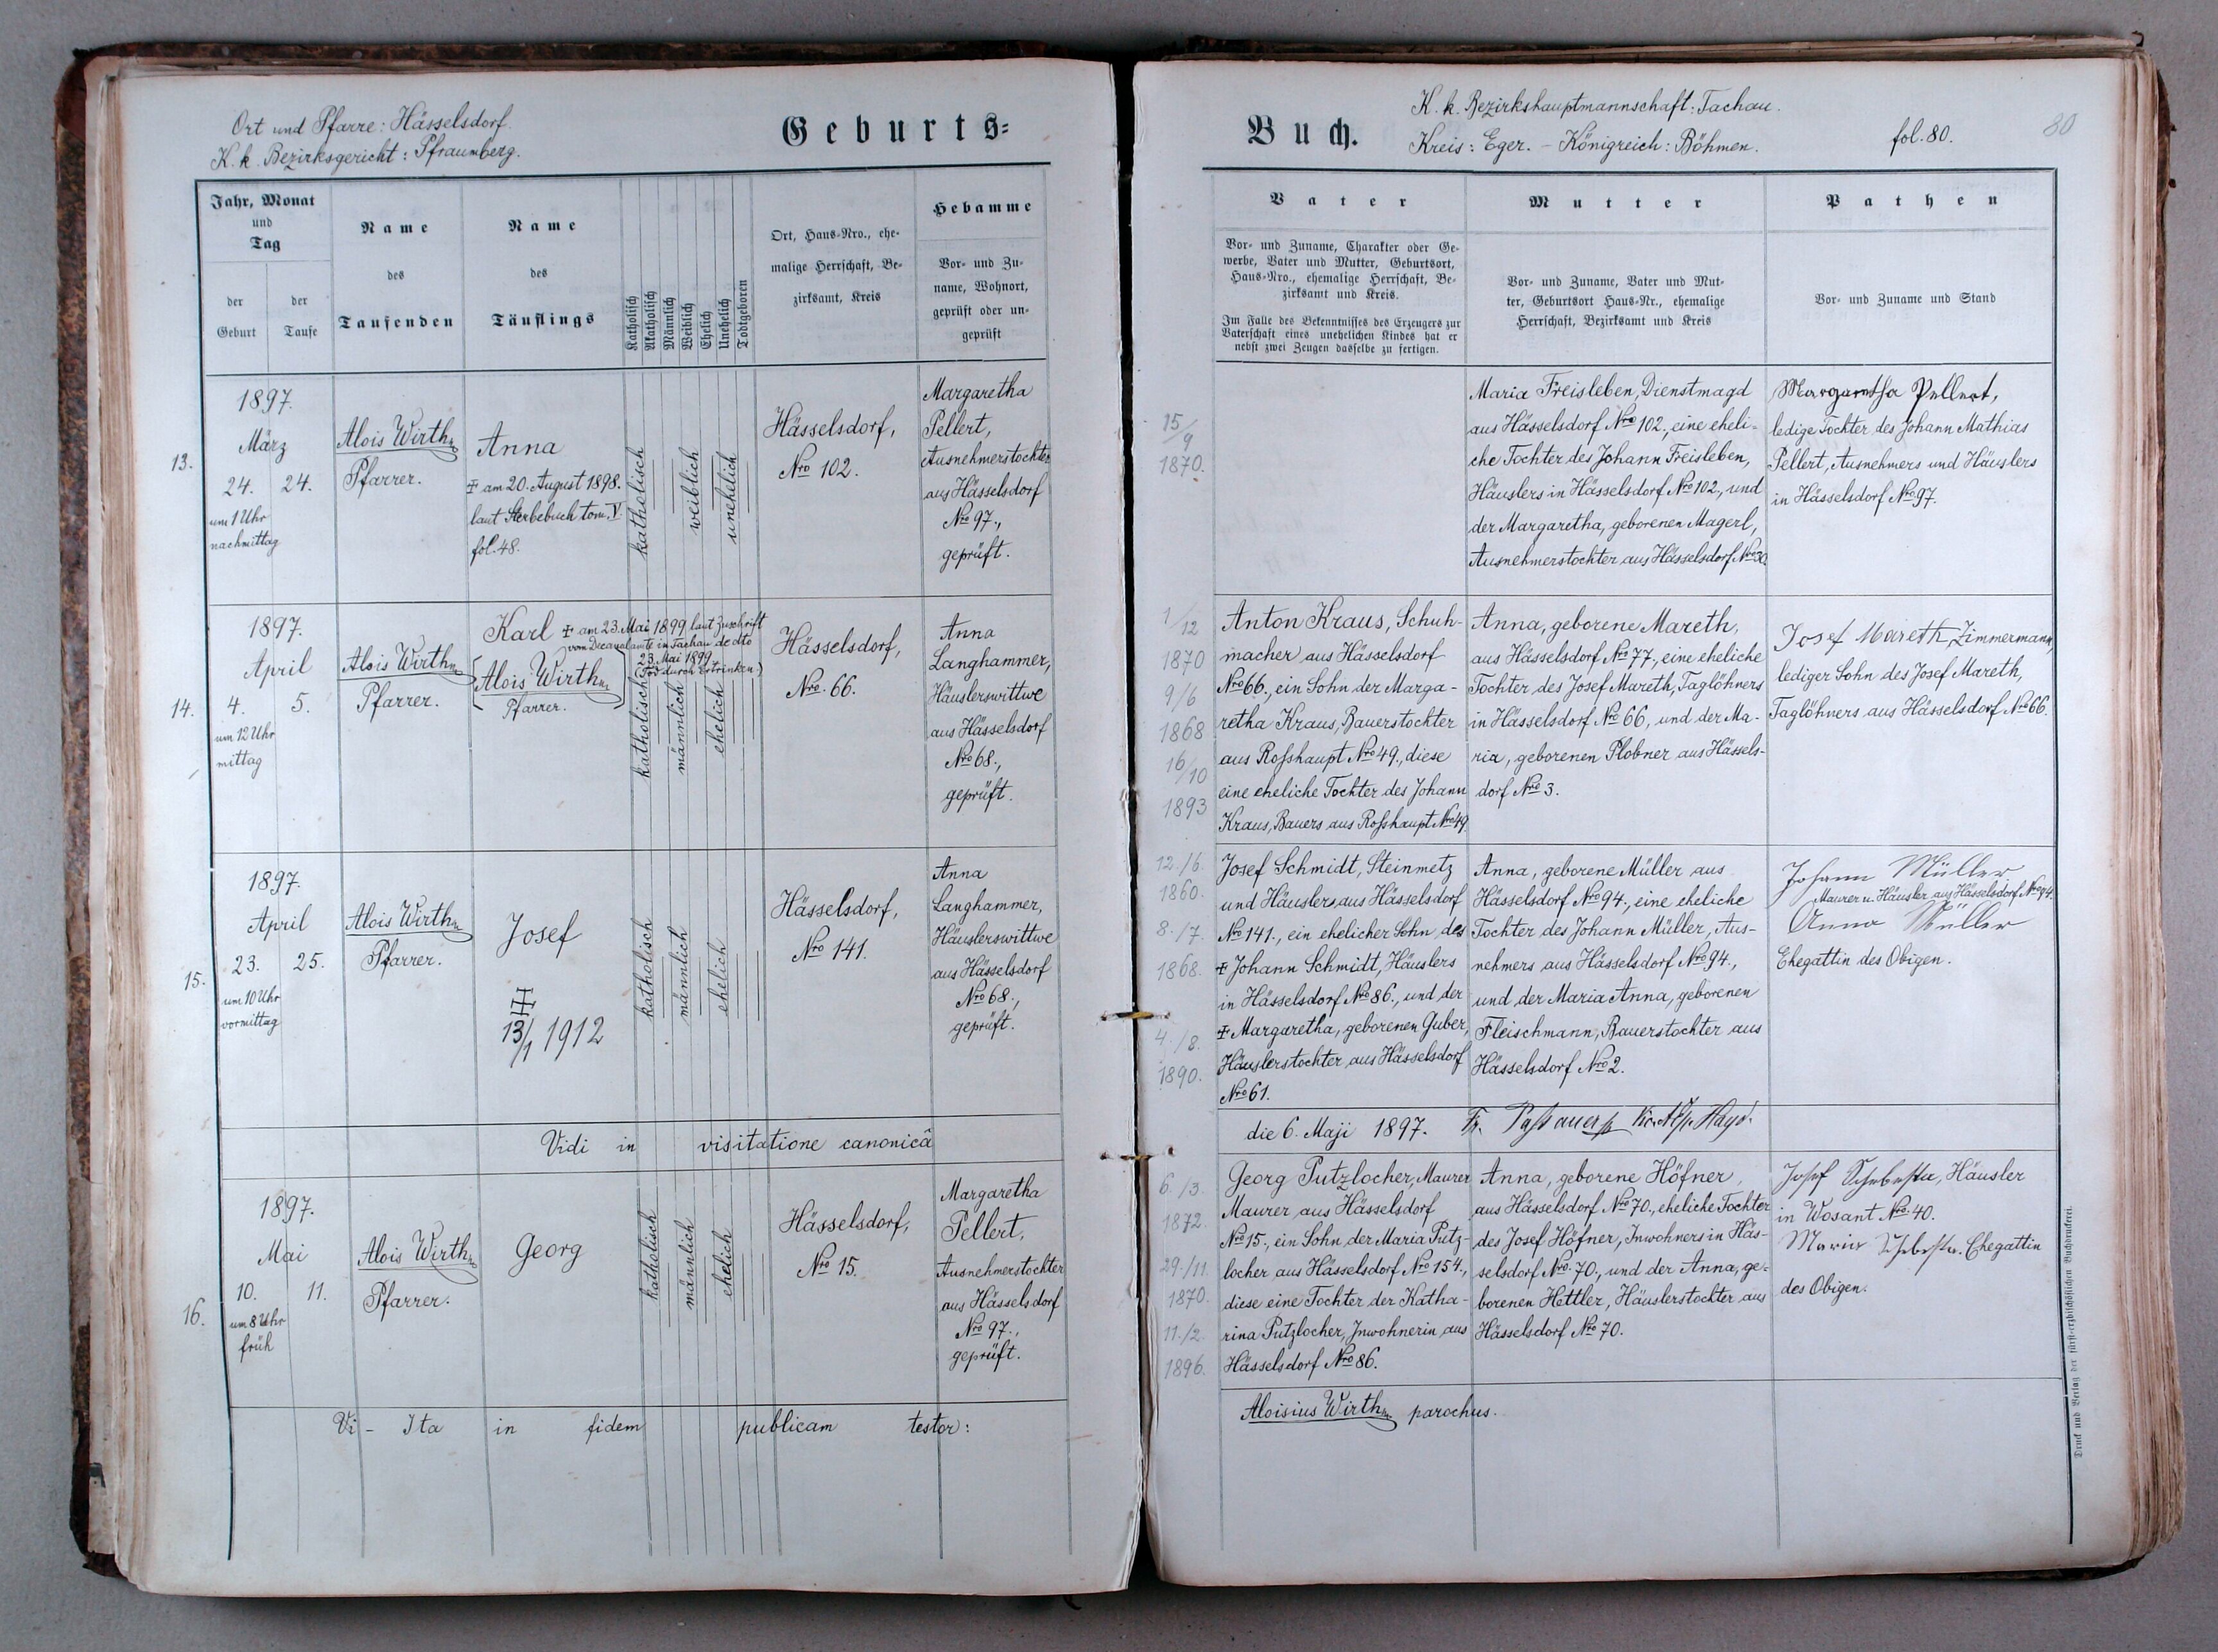 Ort und Pfarre: Hässelsdorf.
K. k. Bezirksgericht: Pfraumberg.
Geburts=
Jahr, Monat
und
Tag
der
Geburt
der
Taufe
Name
des
Taufenden
Name
des
Täuflings
Katholisch
Akatholisch
Männlich
Weiblich
Ehelich
Unehelich
Todtgeboren
Ort, Haus=Nro., ehe=
malige Herrschaft, Be=
zirksamt, Kreis
Hebamme
Vor= und Zu=
name, Wohnort,
geprüft oder un=
geprüft
13.
1897.
März
24. 24.
um 1 Uhr
nachmittag
Alois Wirth
Pfarrer.
Anna
‡ am 20. August 1898.
laut Sterbebuch tom. V.
fol. 48.
katholisch
weiblich
unehelich
Hässelsdorf,
Nro 102.
Margaretha
Pellert,
Ausnehmerstochter
aus Hässelsdorf
Nro 97.,
geprüft.
14.
1897.
April
4. 5.
um 12 Uhr
mittag
Alois Wirth
Pfarrer.
Karl ‡ am 23. Mai 1899 laut Zuschrift
vom Decanalamte in Tachau de dto
23. Mai 1899.
(Tod durch Ertrinken.)
Alois Wirth
Pfarrer.
katholisch
männlich
ehelich
Hässelsdorf,
Nro. 66.
Anna
Langhammer,
Häuslerswittwe
aus Hässelsdorf
Nro 68.,
geprüft.
15.
1897.
April
23. 25.
um 10 Uhr
vormittag
Alois Wirth
Pfarrer.
Josef
13/1 1912
katholisch
männlich
ehelich
Hässelsdorf,
Nro 141.
Anna
Langhammer,
Häuslerswittwe
aus Hässelsdorf
Nro 68.,
geprüft.
Vidi in visitatione canonicâ
16.
1897.
Mai
10. 11.
um 8 Uhr
früh
Alois Wirth
Pfarrer.
Georg
katholisch
männlich
ehelich
Hässelsdorf,
Nro 15.
Margaretha
Pellert,
Ausnehmerstochter
aus Hässelsdorf
Nro 97.,
geprüft.
Vi - Ita in fidem publicam testor:
Buch.
K. k. Bezirkshauptmannschaft: Tachau.
Kreis: Eger. - Königreich: Böhmen.
fol. 80.
80
Vater
Vor= und Zuname, Charakter oder Ge=
werbe, Vater und Mutter, Geburtsort,
Haus=Nro., ehemalige Herrschaft, Be=
zirksamt und Kreis.
Im Falle des Bekenntnisses des Erzeugers zur
Vaterschaft eines unehelichen Kindes hat er
nebst zwei Zeugen dasselbe zu fertigen.
Mutter
Vor= und Zuname, Vater und Mut=
ter, Geburtsort Haus=Nr., ehemalige
Herrschaft, Bezirksamt und Kreis
Pathen
Vor= und Zuname und Stand
15/9
1870.
Maria Freisleben, Dienstmagd
aus Hässelsdorf Nro 102., eine eheli=
che Tochter des Johann Freisleben,
Häuslers in Hässelsdorf Nro 102., und
der Margaretha, geborenen Magerl,
Ausnehmerstochter aus Hässelsdorf Nro 30.
Margaretha Pellert,
ledige Tochter des Johann Mathias
Pellert, Ausnehmers und Häuslers
in Hässelsdorf Nro 97.
1/12
1870
9/6
1868
16/10
1893
Anton Kraus, Schuh-
macher aus Hässelsdorf
Nro 66., ein Sohn der Marga-
retha Kraus, Bauerstochter
aus Rosshaupt Nro 49., diese
eine eheliche Tochter des Johann
Kraus, Bauers aus Rosshaupt Nro 49
Anna, geborene Mareth,
aus Hässelsdorf Nro 77., eine eheliche
Tochter des Josef Mareth, Taglöhners
in Hässelsdorf Nro 66, und der Ma-
ria, geborenen Plobner aus Hässels-
dorf Nro 3.
Josef Mareth, Zimmermann,
lediger Sohn des Josef Mareth,
Taglöhners aus Hässelsdorf Nro 66.
12./6.
1860.
8./7.
1868.
4./8.
1890.
Josef Schmidt, Steinmetz
und Häuslers aus Hässelsdorf
No 141., ein ehelicher Sohn des
‡ Johann Schmidt, Häuslers
in Hässelsdorf Nro 86., und der
‡ Margaretha, geborenen Guber,
Häuslerstochter aus Hässelsdorf
Nro 61.
Anna, geborene Müller aus
Hässelsdorf Nro 94., eine eheliche
Tochter des Johann Müller, Aus-
nehmers aus Hässelsdorf Nro 94.,
und der Maria Anna, geborenen
Fleischmann, Bauerstochter aus
Hässelsdorf Nro 2.
Johann Müller
Maurer u. Häusler aus Hässelsdorf Nro 94.
Anna Müller
Ehegattin des Obigen.
die 6. Maji 1897.
6./3.
1872.
29./11.
1870.
11./2.
1896.
Georg Putzlocher, Maurer
Maurer aus Hässelsdorf
Nro 15., ein Sohn der Maria Putz-
locher aus Hässelsdorf Nro 154.,
diese eine Tochter der Katha-
rina Putzlocher, Inwohnerin aus
Hässelsdorf Nro 86.
Anna, geborene Höfner,
aus Hässelsdorf Nro 70., eheliche Tochter
des Josef Höfner, Inwohners in Häs-
selsdorf Nro. 70., und der Anna, ge-
borenen Hettler, Häuslerstochter aus
Hässelsdorf Nro 70.
Josef Schebesta, Häusler
in Wosant Nro. 40.
Maria Schebesta. Ehegattin
des Obigen.
Aloisius Wirth parochus.
Druck und Verlag der fürst=erzbischöflichen Buchdruckerei.